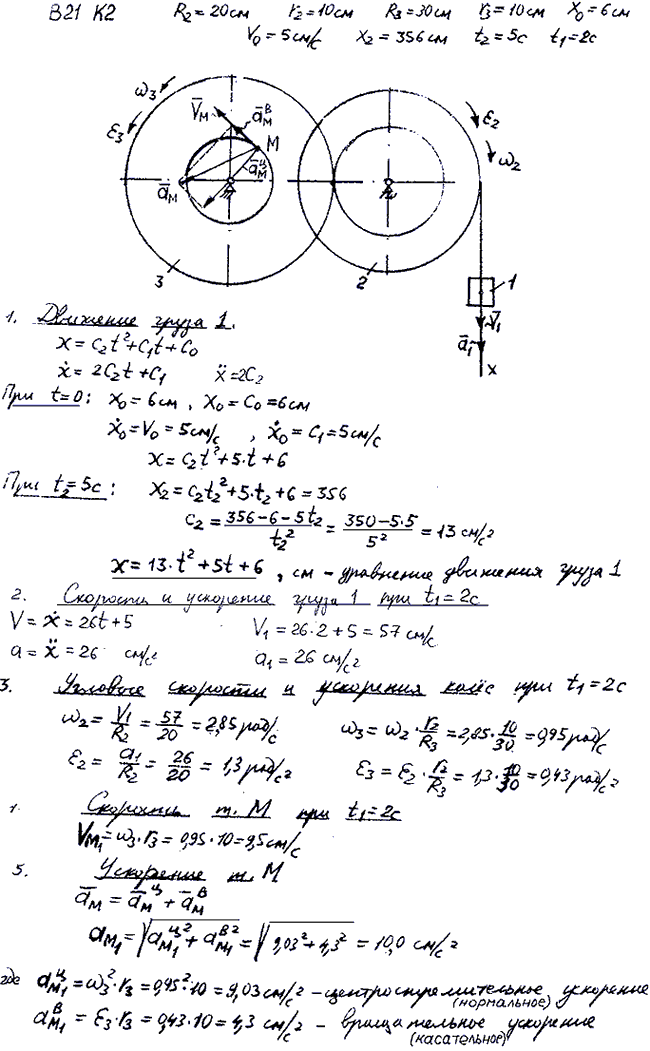 В21 К2 R₂=20см r₂=10см R₃=30см r₃=10см X₀=6см
V₀=5см/с X₂=356см t₂=5с t₁=2с
ω₃
ε₃
V̄м
āᴮм
M
āᶭм
āм
ε₂
ω₂
3
2
1
V̄₁
ā₁
x
1. Движение груза 1.
x=C₂t²+C₁t+C₀
ẋ=2C₂t+C₁ ẍ=2C₂
При t=0: x₀=6см, x₀=C₀=6см
ẋ₀=V₀=5см/с, ẋ₀=C₁=5см/с
x=C₂t²+5·t+6
При t₂=5с: x₂=C₂t₂²+5·t₂+6=356
C₂=(356-6-5t₂)/t₂²=(350-5·5)/5²=13 см/с²
x=13·t²+5t+6, см - уравнение движения груза 1
2. Скорость и ускорение груза 1 при t₁=2с
V=ẋ=26t+5 V₁=26·2+5=57 см/с
a=ẍ=26 см/с² a₁=26 см/с²
3. Угловые скорости и ускорения колёс при t₁=2с
ω₂=V₁/R₂=57/20=2,85рад/с ω₃=ω₂·r₂/R₃=2,85·10/30=0,95рад/с
ε₂=a₁/R₂=26/20=1,3рад/с² ε₃=ε₂·r₂/R₃=1,3·10/30=0,43рад/с²
1. Скорость т. М при t₁=2с
Vм₁=ω₃·r₃=0,95·10=9,5см/с
5. Ускорение т. М
āм=āᶭм+āᴮм
aм₁=√(aᶭм₁²+aᴮм₁²)=√(9,03²+4,3²)=10,0 см/с²
где aᶭм₁=ω₃²·r₃=0,95²·10=9,03см/с² - центростремительное ускорение
(нормальное)
aᴮм₁=ε₃·r₃=0,43·10=4,3 см/с² - вращательное ускорение
(касательное)